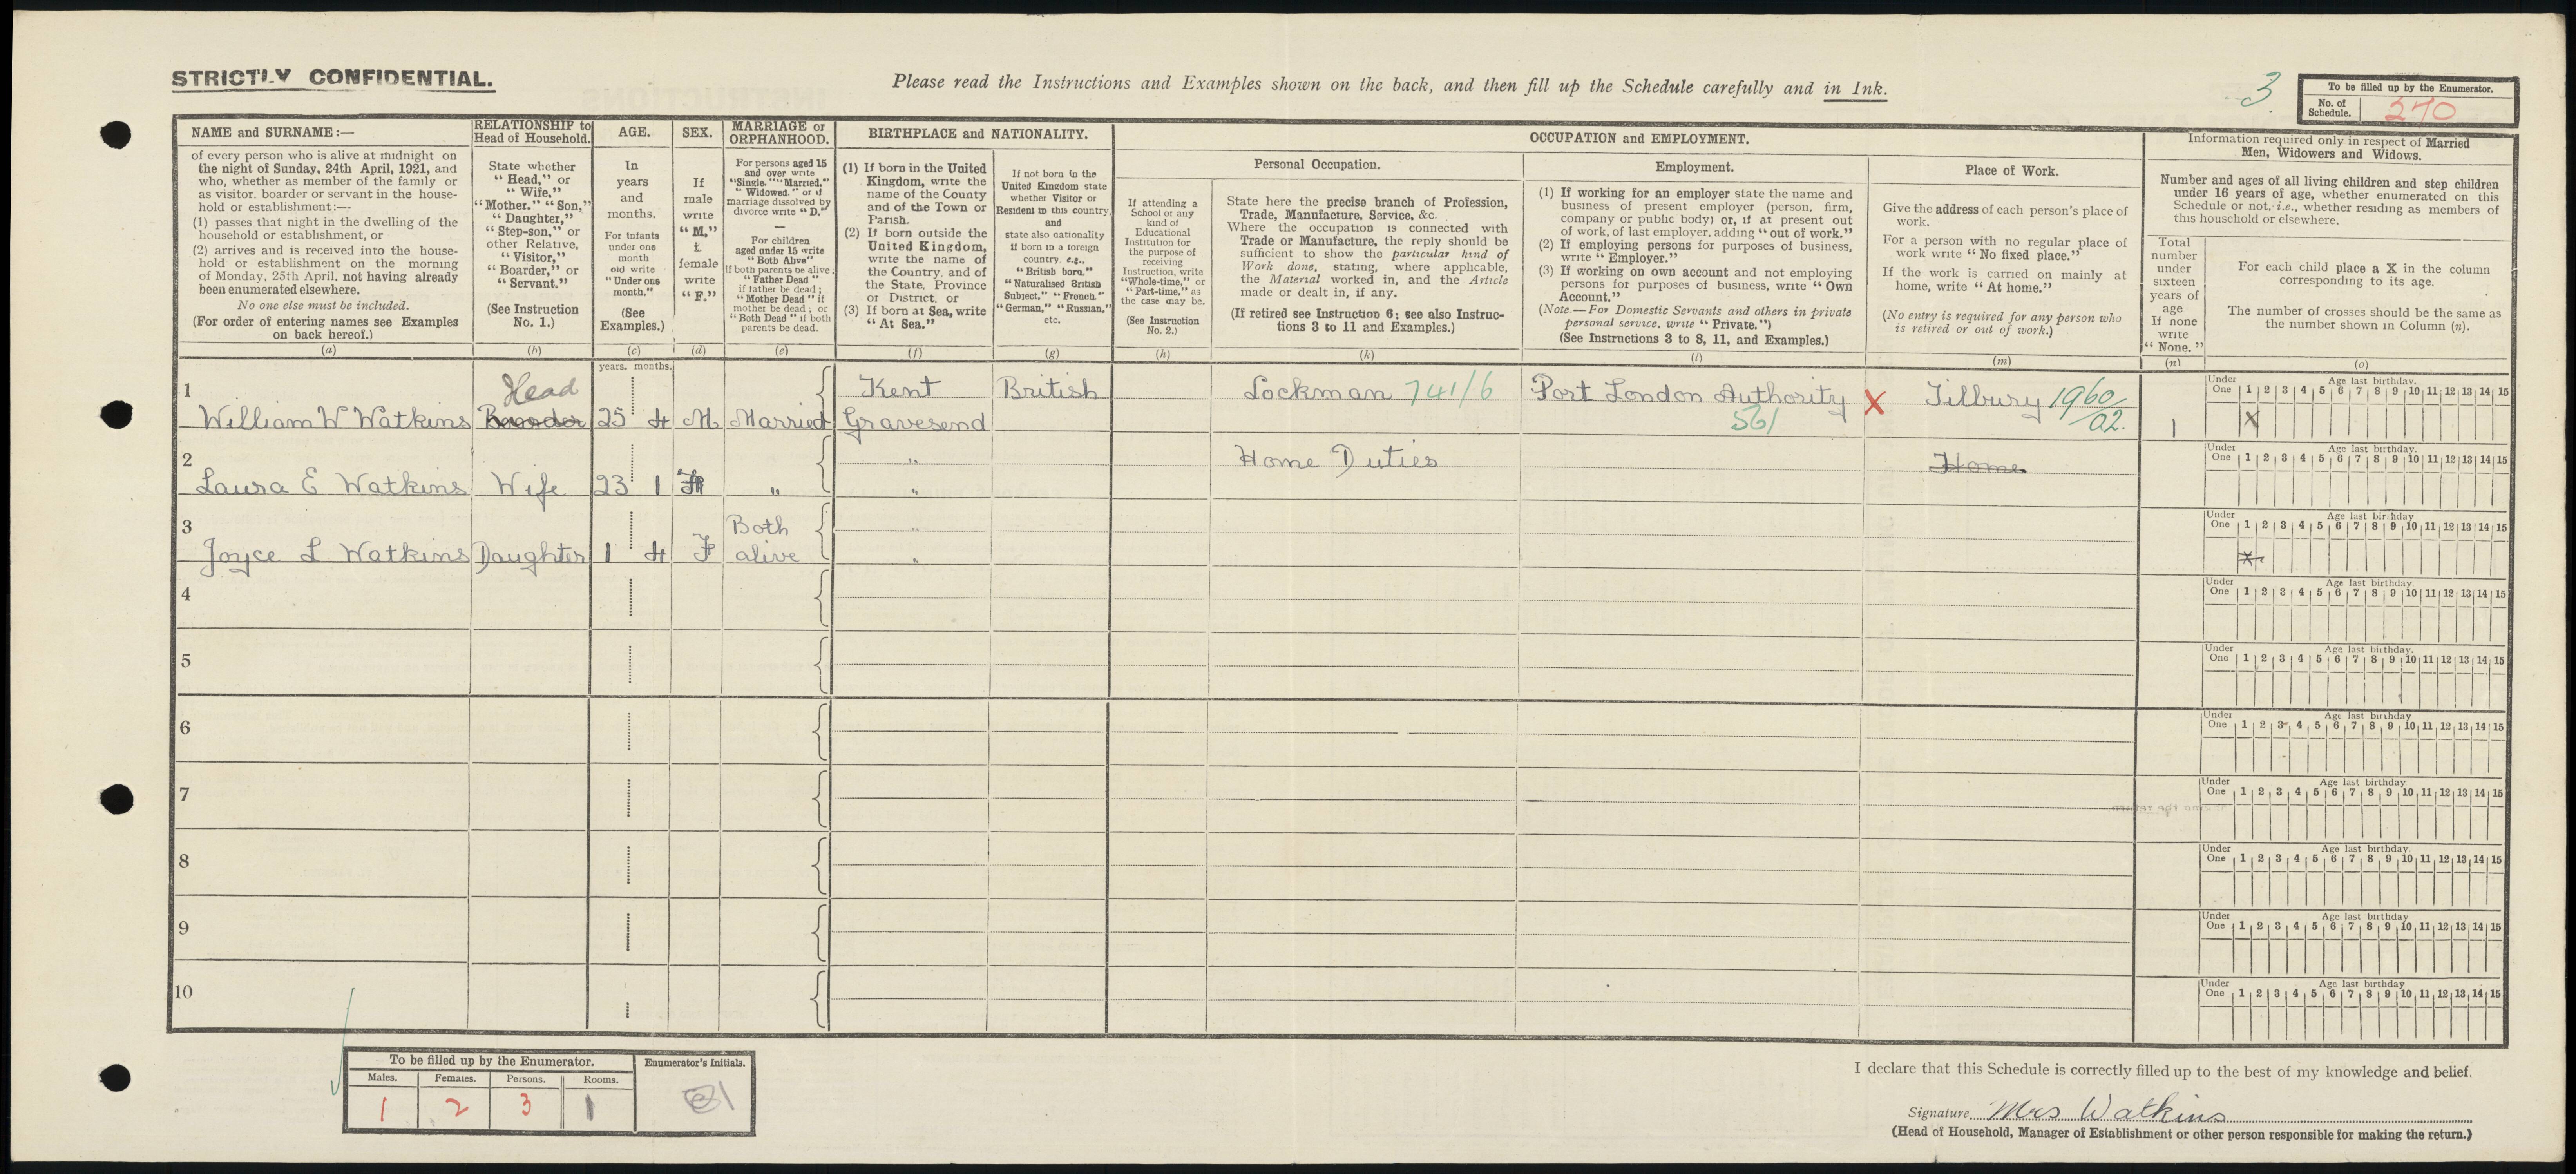 STRICTLY CONFIDENTIAL.
Please read the Instructions and Examples shown on the back, and then fill up the Schedule carefully and in Ink.
3
To be filled up by the Enumerator.
No. of Schedule. 270
NAME and SURNAME:—
of every person who is alive at midnight on
the night of Sunday, 24th April, 1921, and
who, whether as member of the family or
as visitor, boarder or servant in the house-
hold or establishment:—
(1) passes that night in the dwelling of the
household or establishment, or
(2) arrives and is received into the house-
hold or establishment on the morning
of Monday, 25th April, not having already
been enumerated elsewhere.
No one else must be included.
(For order of entering names see Examples
on back hereof.)
(a)
RELATIONSHIP to
Head of Household.
State whether
"Head," or
"Wife,"
"Mother," "Son,"
"Daughter,"
"Step-son," or
other Relative,
"Visitor,"
"Boarder," or
"Servant."
(See Instruction
No. 1.)
(b)
AGE.
In
years
and
months.
For infants
under one
month
old write
"Under one
month."
(See
Examples.)
(c)
SEX.
If
male
write
"M,"
if
female
write
"F."
(d)
MARRIAGE or
ORPHANHOOD.
For persons aged 15
and over write
"Single," "Married,"
"Widowed," or if
marriage dissolved by
divorce write "D."
—
For children
aged under 15 write
"Both Alive"
if both parents be alive
"Father Dead"
if father be dead;
"Mother Dead" if
mother be dead; or
"Both Dead" if both
parents be dead.
(e)
BIRTHPLACE and NATIONALITY.
(1) If born in the United
Kingdom, write the
name of the County
and of the Town or
Parish.
(2) If born outside the
United Kingdom,
write the name of
the Country, and of
the State, Province
or District, or
(3) If born at Sea, write
"At Sea."
(f)
If not born in the
United Kingdom state
whether Visitor or
Resident in this country,
and
state also nationality
if born in a foreign
country, e.g.,
"British born."
"Naturalised British
Subject," "French,"
"German," "Russian,"
etc.
(g)
OCCUPATION and EMPLOYMENT.
If attending a
School or any
kind of
Educational
Institution for
the purpose of
receiving
Instruction, write
"Whole-time," or
"Part-time," as
the case may be.
(See Instruction
No. 2.)
(h)
Personal Occupation.
State here the precise branch of Profession,
Trade, Manufacture, Service, &c.
Where the occupation is connected with
Trade or Manufacture, the reply should be
sufficient to show the particular kind of
Work done, stating, where applicable,
the Material worked in, and the Article
made or dealt in, if any.
(If retired see Instruction 6; see also Instruc-
tions 3 to 11 and Examples.)
(k)
Employment.
(1) If working for an employer state the name and
business of present employer (person, firm,
company or public body) or, if at present out
of work, of last employer, adding "out of work."
(2) If employing persons for purposes of business,
write "Employer."
(3) If working on own account and not employing
persons for purposes of business, write "Own
Account."
(Note.—For Domestic Servants and others in private
personal service, write "Private.")
(See Instructions 3 to 8, 11, and Examples.)
(l)
Place of Work.
Give the address of each person's place of
work.
For a person with no regular place of
work write "No fixed place."
If the work is carried on mainly at
home, write "At home."
(No entry is required for any person who
is retired or out of work.)
(m)
Information required only in respect of Married
Men, Widowers and Widows.
Number and ages of all living children and step children
under 16 years of age, whether enumerated on this
Schedule or not, i.e., whether residing as members of
this household or elsewhere.
Total
number
under
sixteen
years of
age
If none
write
"None."
(n)
For each child place a X in the column
corresponding to its age.
The number of crosses should be the same as
the number shown in Column (n).
(o)
years. months.
1
Head
Kent British Lockman 741/6 Port London Authority X Tilbury 1960/02.
William W Watkins 25 4 M Married Gravesend 561 1
Under One Age last birthday. 1 2 3 4 5 6 7 8 9 10 11 12 13 14 15
X
2
" Home Duties Home
Laura E Watkins Wife 23 1 F " "
Under One Age last birthday. 1 2 3 4 5 6 7 8 9 10 11 12 13 14 15
3
Both "
Joyce L Watkins Daughter 1 4 F alive "
Under One Age last birthday 1 2 3 4 5 6 7 8 9 10 11 12 13 14 15
X
4
Under One Age last birthday. 1 2 3 4 5 6 7 8 9 10 11 12 13 14 15
5
Under One Age last birthday. 1 2 3 4 5 6 7 8 9 10 11 12 13 14 15
6
Under One Age last birthday 1 2 3 4 5 6 7 8 9 10 11 12 13 14 15
7
Under One Age last birthday 1 2 3 4 5 6 7 8 9 10 11 12 13 14 15
8
Under One Age last birthday. 1 2 3 4 5 6 7 8 9 10 11 12 13 14 15
9
Under One Age last birthday 1 2 3 4 5 6 7 8 9 10 11 12 13 14 15
10
Under One Age last birthday 1 2 3 4 5 6 7 8 9 10 11 12 13 14 15
To be filled up by the Enumerator. Enumerator's Initials.
Males. Females. Persons. Rooms.
1 2 3 1
I declare that this Schedule is correctly filled up to the best of my knowledge and belief.
Signature Mrs Watkins
(Head of Household, Manager of Establishment or other person responsible for making the return.)